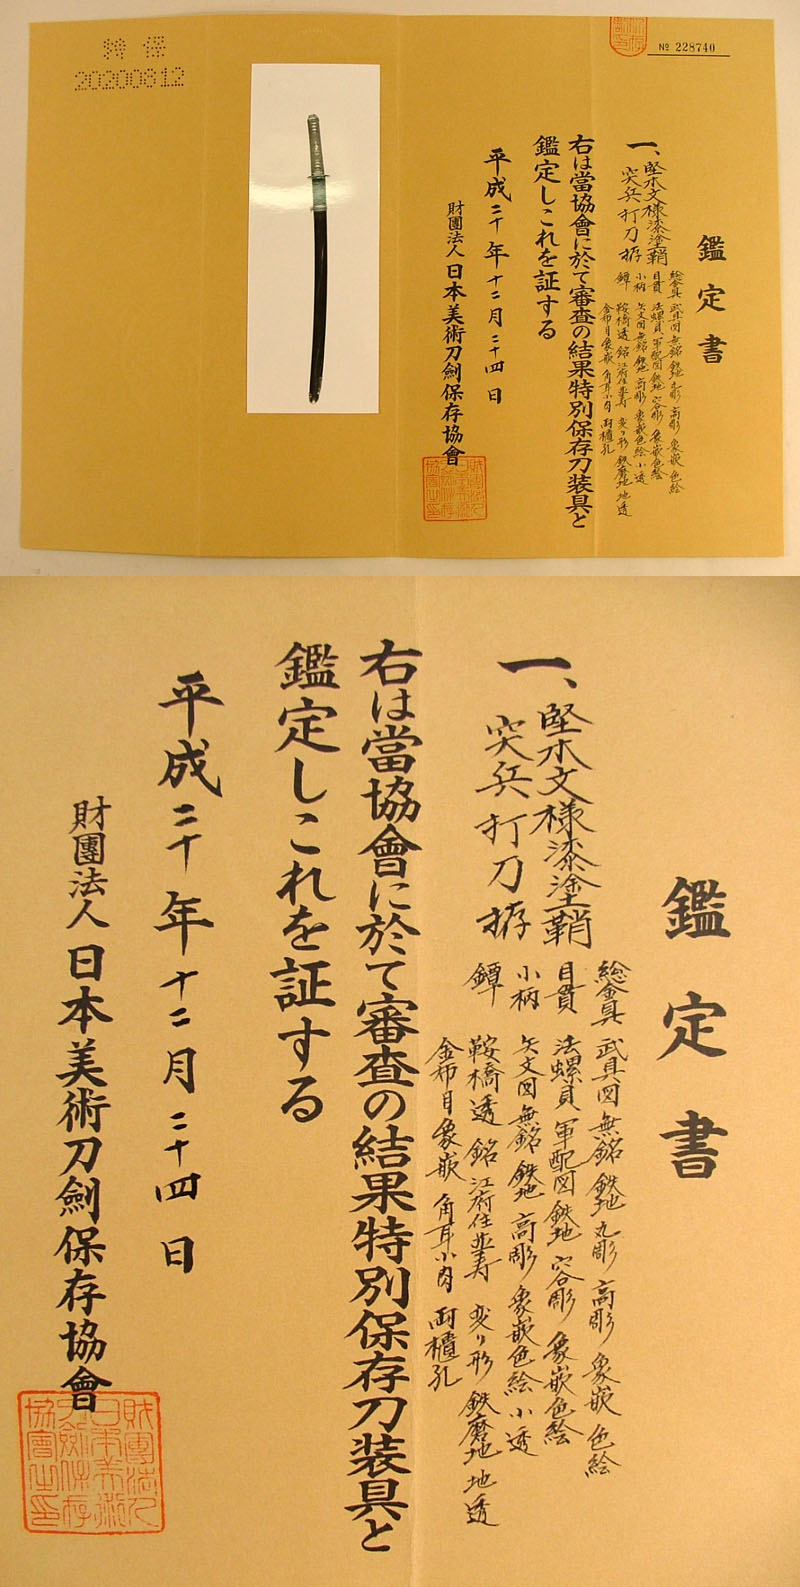 特保
20200812
№ 228740
鑑定書
一、堅木文様漆塗鞘
突兵打刀拵
総金具 武具図 無銘 鉄地 丸彫 高彫 象嵌 色絵
目貫 法螺貝 軍配図 鉄地 容彫 象嵌色絵
小柄 矢文図 無銘 鉄地 高彫 象嵌色絵 小透
鐔 鞍橋透 銘 江府住並寿 変り形 鉄磨地 地透
金布目象嵌 角耳小肉 両櫃孔
右は當協會に於て審査の結果特別保存刀装具と
鑑定しこれを証する
平成二十年十二月二十四日
財團法人日本美術刀劍保存協會
鑑定書
一、堅木文様漆塗鞘
突兵打刀拵
総金具 武具図 無銘 鉄地 丸彫 高彫 象嵌 色絵
目貫 法螺貝 軍配図 鉄地 容彫 象嵌色絵
小柄 矢文図 無銘 鉄地 高彫 象嵌色絵 小透
鐔 鞍橋透 銘 江府住並寿 変り形 鉄磨地 地透
金布目象嵌 角耳小肉 両櫃孔
右は當協會に於て審査の結果特別保存刀装具と
鑑定しこれを証する
平成二十年十二月二十四日
財團法人日本美術刀劍保存協會
財團法人
日本美術
刀劍保存
協會之印